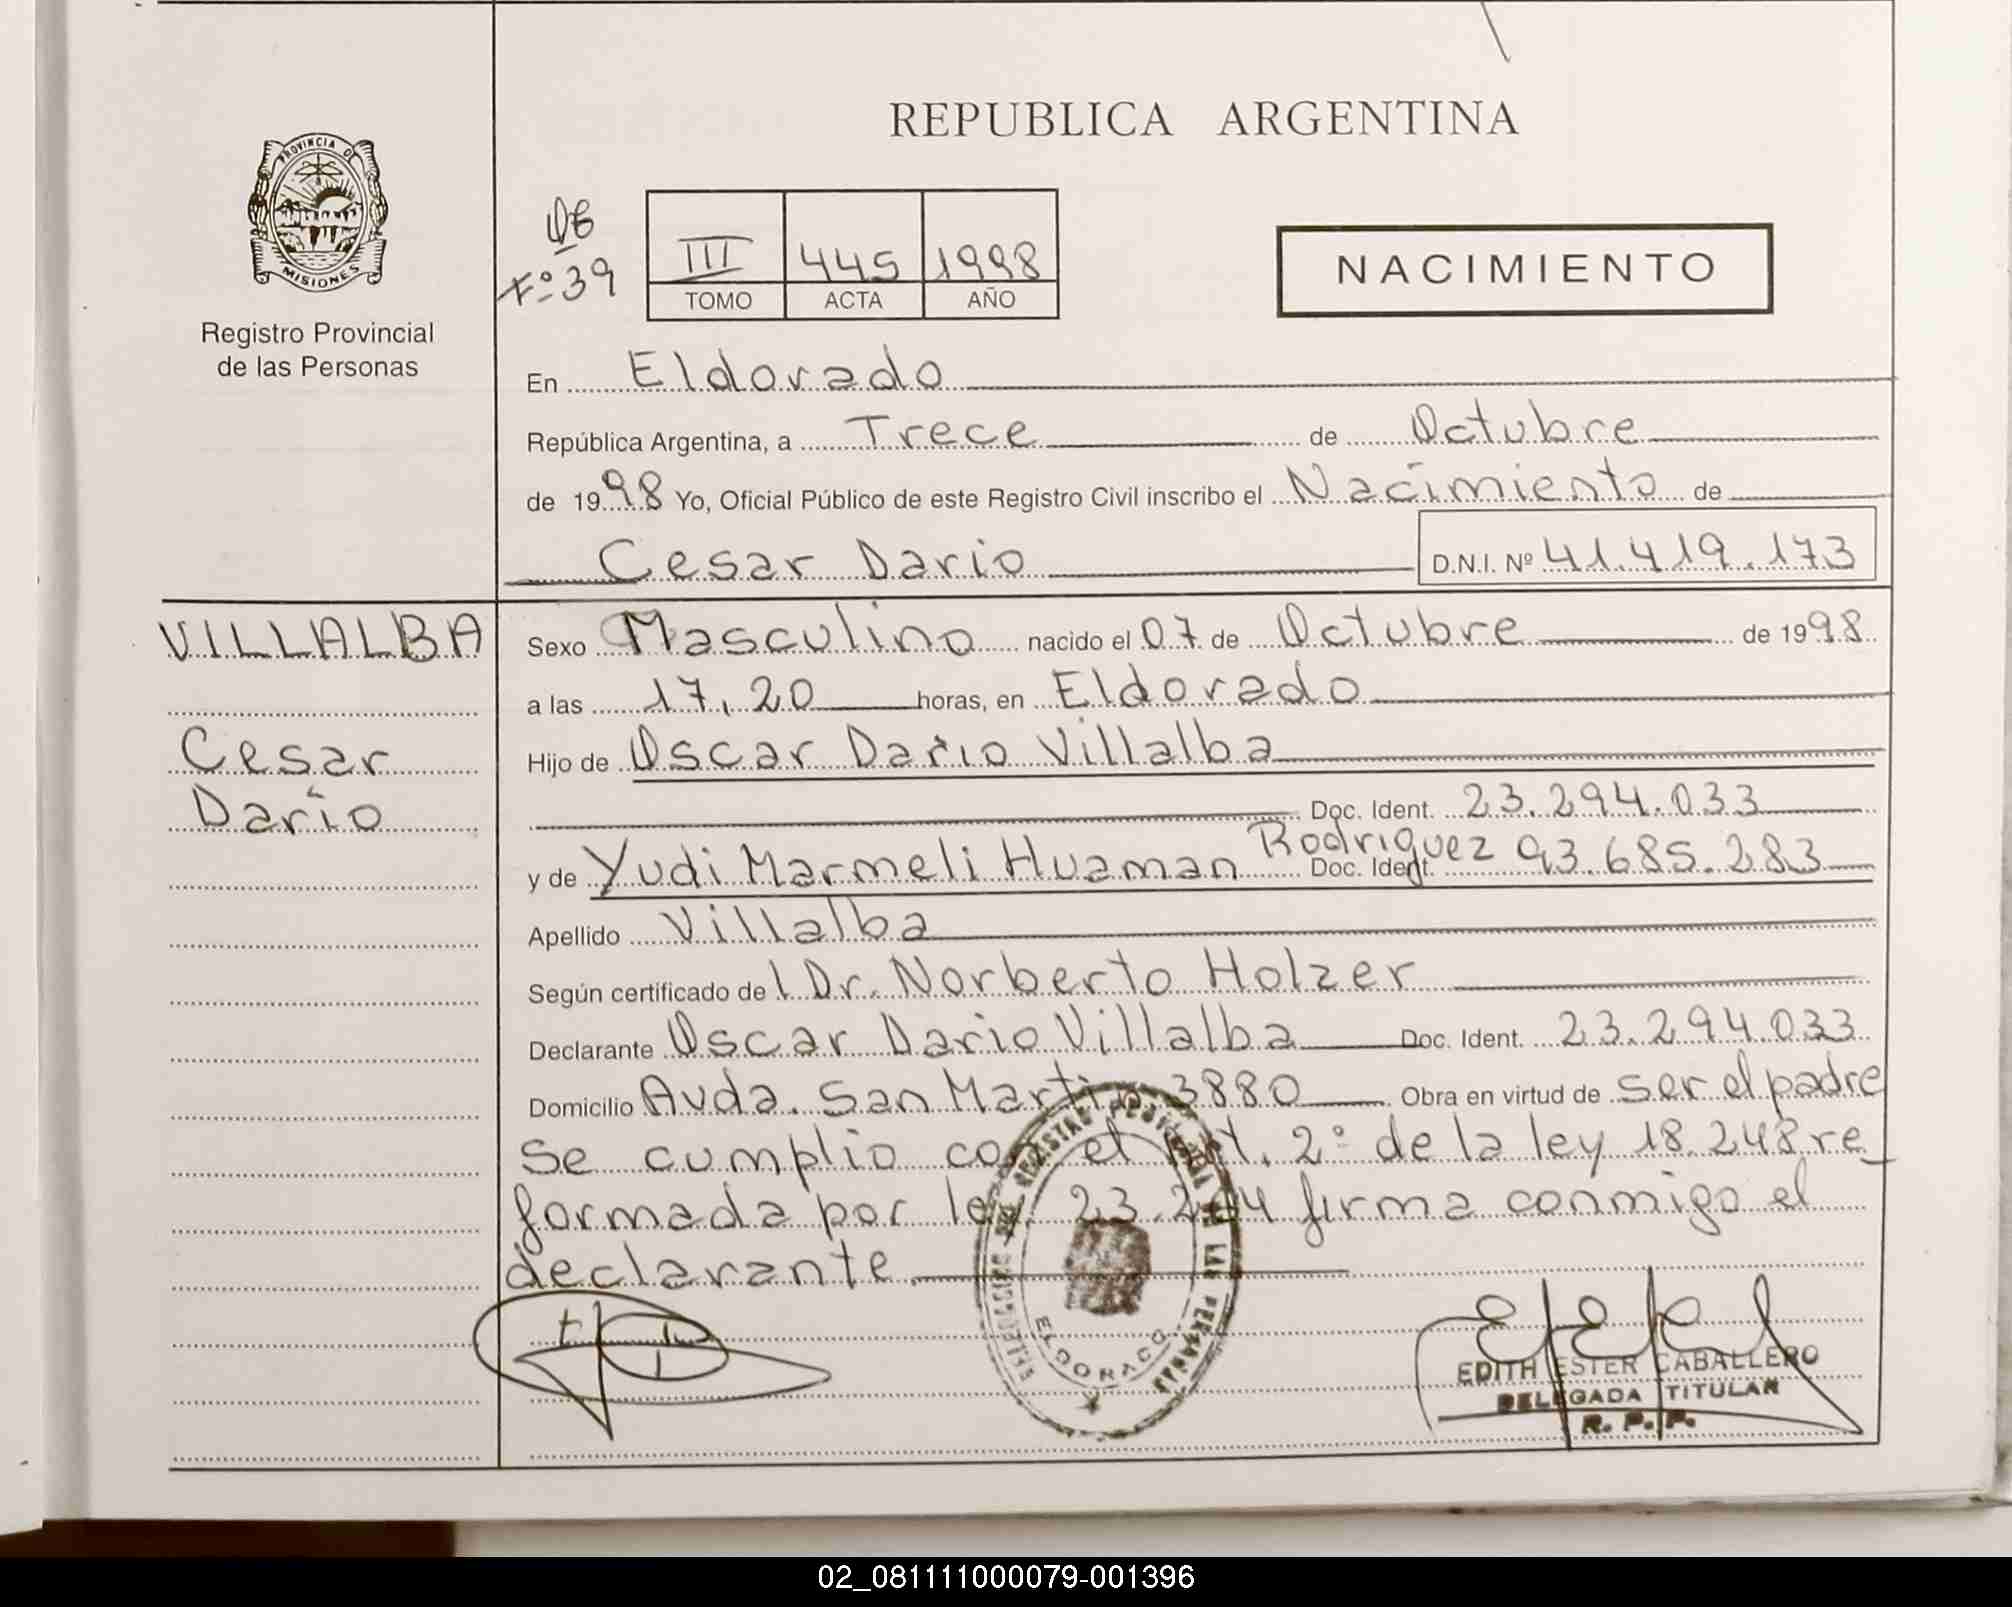 REPUBLICA ARGENTINA
PROVINCIA DE
MISIONES
Registro Provincial
de las Personas
Fº 39
III 445 1998
TOMO ACTA AÑO
NACIMIENTO
En Eldorado
República Argentina, a Trece de Octubre
de 1998 Yo, Oficial Público de este Registro Civil inscribo el Nacimiento de
Cesar Dario D.N.I. Nº 41.419.173
VILLALBA
Cesar
Darío
Sexo Masculino nacido el 07 de Octubre de 1998
a las 17,20 horas, en Eldorado
Hijo de Oscar Dario Villalba
Doc. Ident. 23.294.033
y de Yudi Marmeli Huaman Rodriguez Doc. Ident. 93.685.283
Apellido Villalba
Según certificado de l Dr. Norberto Holzer
Declarante Oscar Dario Villalba Doc. Ident. 23.294.033
Domicilio Avda. San Martin 3880 Obra en virtud de ser el padre
Se cumplio con el Art. 2º de la ley 18.248 re
formada por ley 23.264 firma conmigo el
declarante
ELDORADO
EDITH ESTER CABALLERO
DELEGADA TITULAR
R. P. P.
02_081111000079-001396